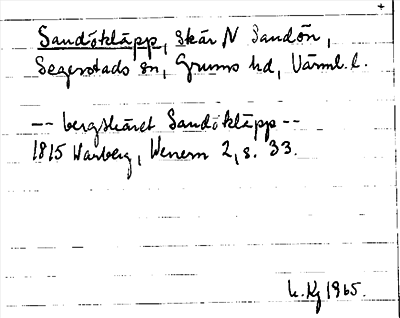 +
Sandökläpp, skär N Sandön,
Segerstads sn, Grums hd, Värml. l.
-- bergskäret Sandökläpp --
1815 Warberg, Wenern 2, s. 33.
L. Kg 1965.